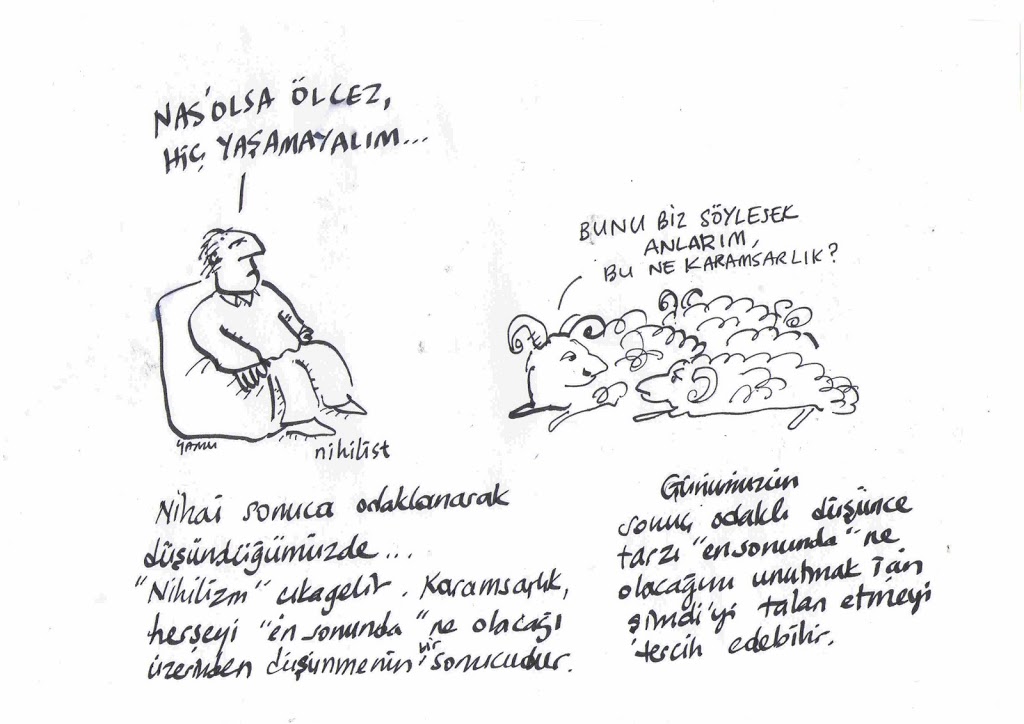 NAS'OLSA ÖLCEZ,
HİÇ YAŞAMAYALIM...
BUNU BİZ SÖYLESEK
ANLARIM,
BU NE KARAMSARLIK?
nihilist
Nihai sonuca odaklanarak
düşündüğümüzde...
"Nihilizm" çıkagelir. Karamsarlık,
herşeyi "en sonunda" ne olacağı
üzerinden düşünmenin bir sonucudur.
Günümüzün
sonuç odaklı düşünce
tarzı "en sonunda" ne
olacağını unutmak için
şimdi'yi talan etmeyi
tercih edebilir.